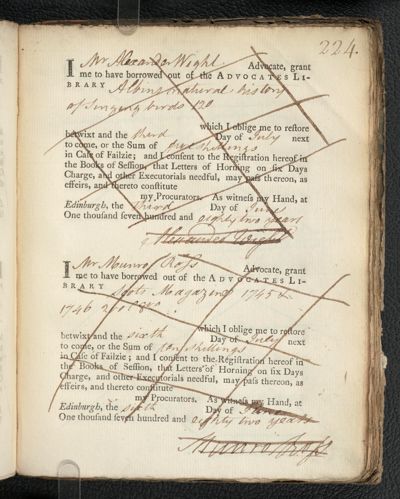 224.
I Mr Alexander Wight Advocate, grant
me to have borrowed out of the ADVOCATES LI-
BRARY Albins natural history
of Singing birds 120
which I oblige me to restore
betwixt and the third Day of July next
to come, or the Sum of five shillings
in Case of Failzie; and I consent to the Registration hereof in
the Books of Session, that Letters of Horning on six Days
Charge, and other Executorials needful, may pass thereon, as
effeirs, and thereto constitute
my Procurators. As witness my Hand, at
Edinburgh, the third Day of June
One thousand seven hundred and eighty two years
Alexander Wight
I Mr Munro Ross Advocate, grant
me to have borrowed out of the ADVOCATES LI-
BRARY Scots Magazine 1745 &
1746 2 vol 8vo
which I oblige me to restore
betwixt and the sixth Day of July next
to come, or the Sum of ten shillings
in Case of Failzie; and I consent to the Registration hereof in
the Books of Session, that Letters of Horning on six Days
Charge, and other Executorials needful, may pass thereon, as
effeirs, and thereto constitute
my Procurators. As witness my Hand, at
Edinburgh, the sixth Day of June
One thousand seven hundred and eighty two years
Munro Ross